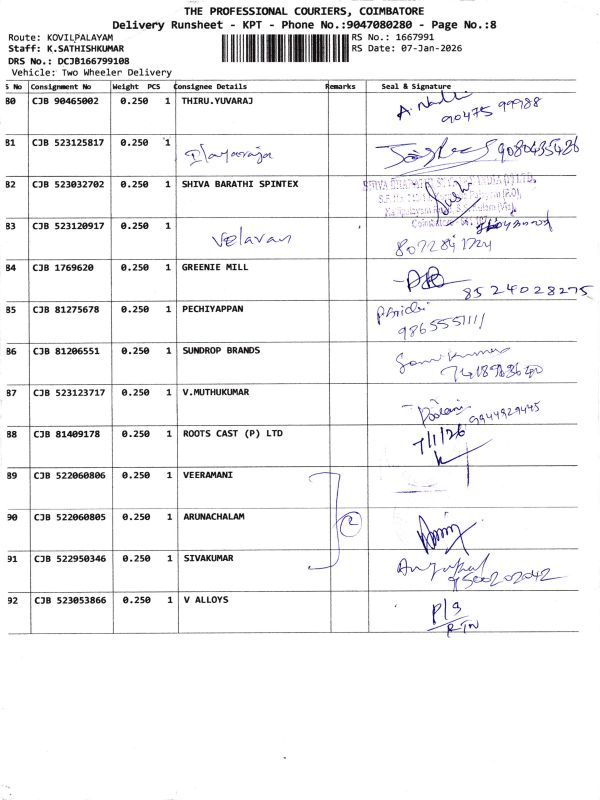 THE PROFESSIONAL COURIERS, COIMBATORE
Delivery Runsheet - KPT - Phone No.:9047080280 - Page No.:8
Route: KOVILPALAYAM
RS No.: 1667991
Staff: K.SATHISHKUMAR
RS Date: 07-Jan-2026
DRS No.: DCJB166799108
Vehicle: Two Wheeler Delivery
S No Consignment No Weight PCS Consignee Details Remarks Seal & Signature
80 CJB 90465002 0.250 1 THIRU.YUVARAJ
90475 99988
81 CJB 523125817 0.250 1 9080435486
82 CJB 523032702 0.250 1 SHIVA BARATHI SPINTEX
83 CJB 523120917 0.250 1 Velavan
8072841724
84 CJB 1769620 0.250 1 GREENIE MILL
8524028275
85 CJB 81275678 0.250 1 PECHIYAPPAN
9865555111
86 CJB 81206551 0.250 1 SUNDROP BRANDS
7418963640
87 CJB 523123717 0.250 1 V.MUTHUKUMAR
9944929445
88 CJB 81409178 0.250 1 ROOTS CAST (P) LTD 7/1/26
89 CJB 522060806 0.250 1 VEERAMANI
90 CJB 522060805 0.250 1 ARUNACHALAM 2
91 CJB 522950346 0.250 1 SIVAKUMAR
9500202042
92 CJB 523053866 0.250 1 V ALLOYS P/S
RTN